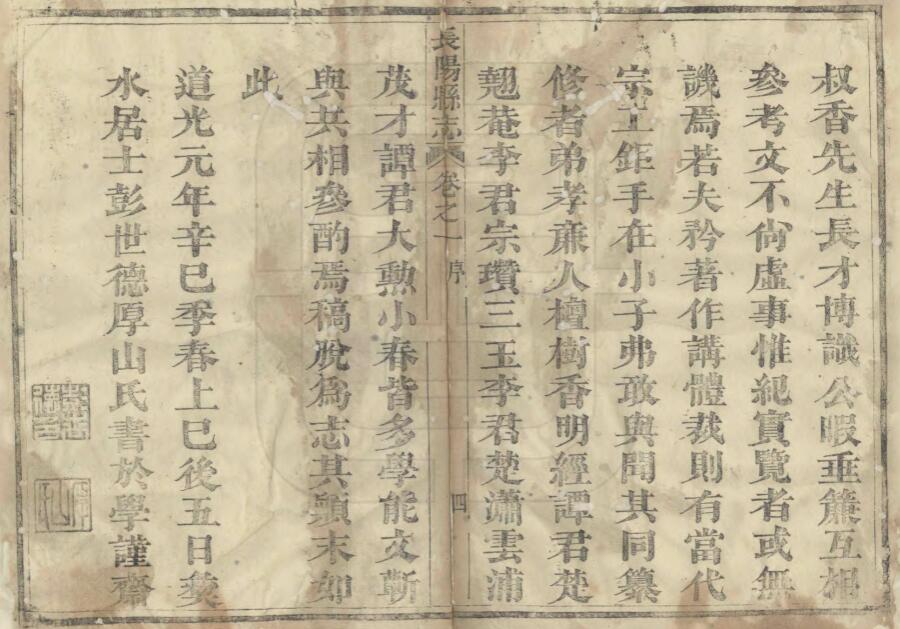 叔香先生長才博識公暇垂簾互相
參考文不尙虛事惟紀實覽者或無
譏焉若夫矜著作講體裁則有當代
宗工鉅手在小子弗敢與聞其同纂
修者弟孝廉人檀樹香明經譚君楚
翹菴李君宗瓚三玉李君楚瀟雲浦
長陽縣志 卷之一 序 四
茂才譚君大勲小春皆多學能文斬
與共相參酌焉稿脫爲志其顚末如
此
道光元年辛巳季春上巳後五日夔
水居士彭世德厚山氏書於學謹齋